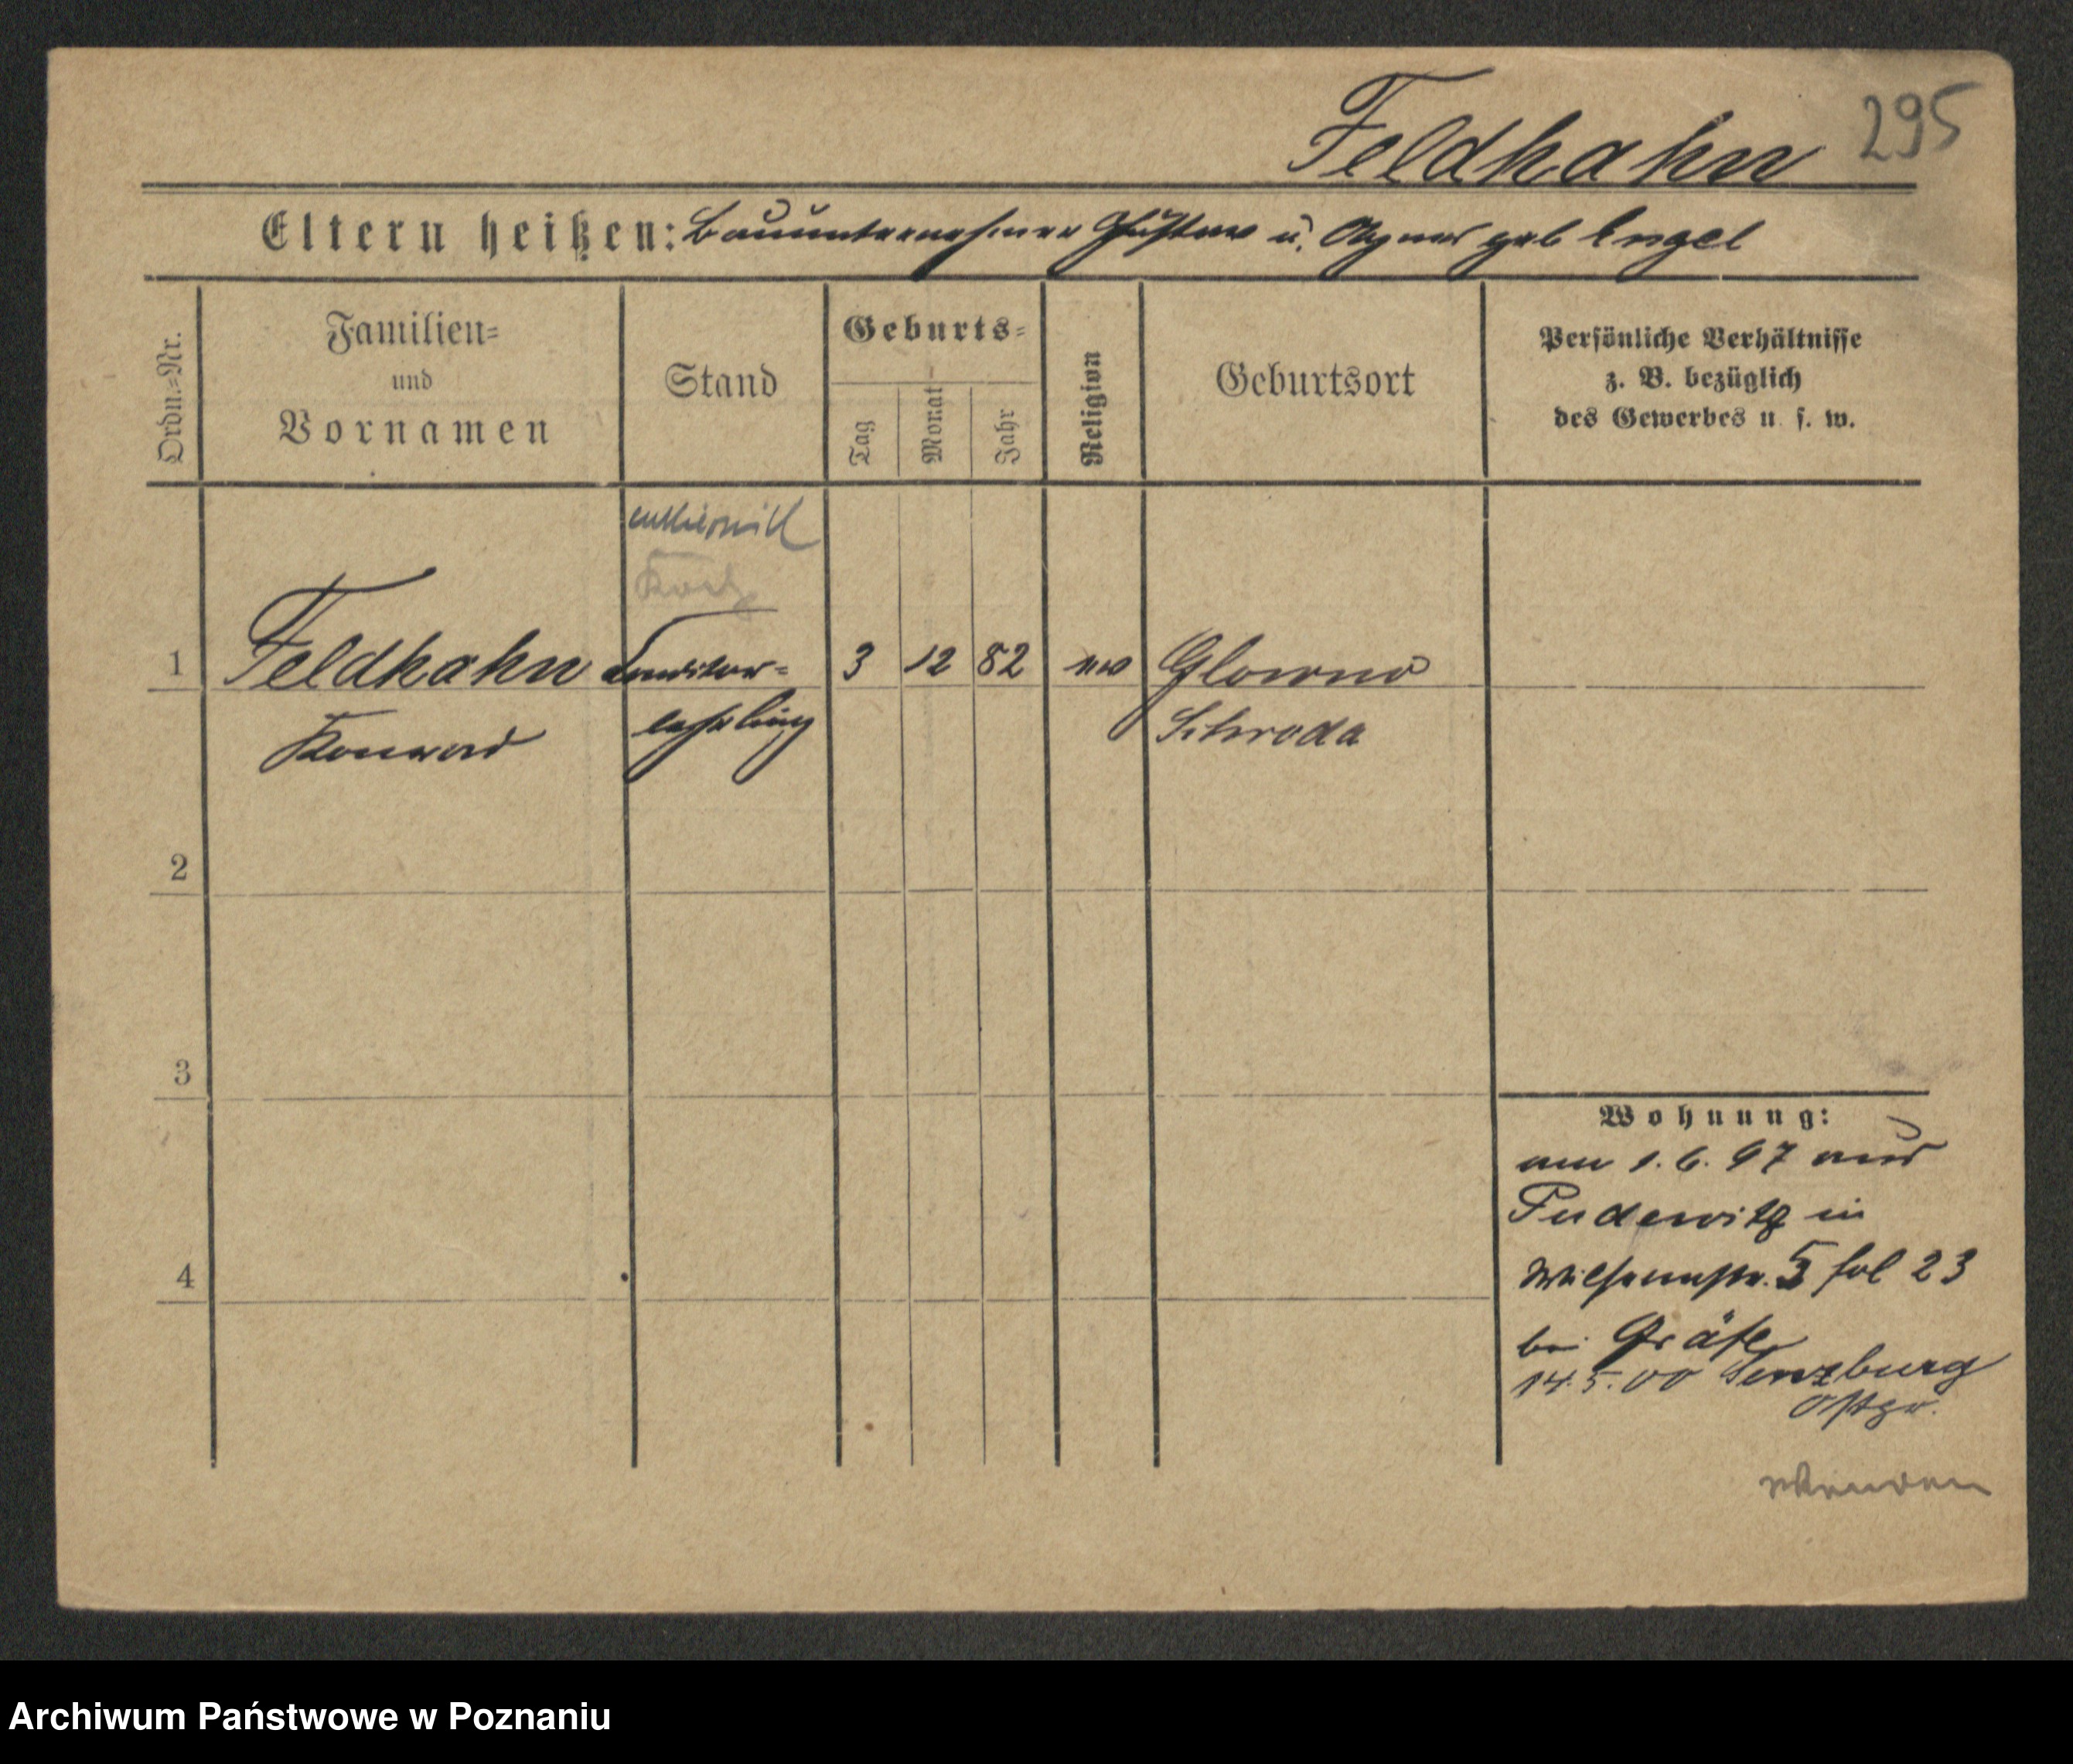 295
Feldhahn
Eltern heißen: Bauunternehmer Gustav u. Agnes geb Engel
Ordn.=Nr.
Familien=
und
Vornamen
Stand
Geburts=
Tag
Monat
Jahr
Religion
Geburtsort
Persönliche Verhältnisse
z. B. bezüglich
des Gewerbes u. s. w.
Koch
1 Feldhahn Conditor= 3 12 82 ev Glowno
Konrad lehrling Schroda
2
3
4
Wohnung:
am 1. 6. 97 aus
Pudewitz in
Wilhelmstr. 5 fol 23
bei Gräfe
14.5.00 Senzburg
Ostpr.
wenden
Archiwum Państwowe w Poznaniu